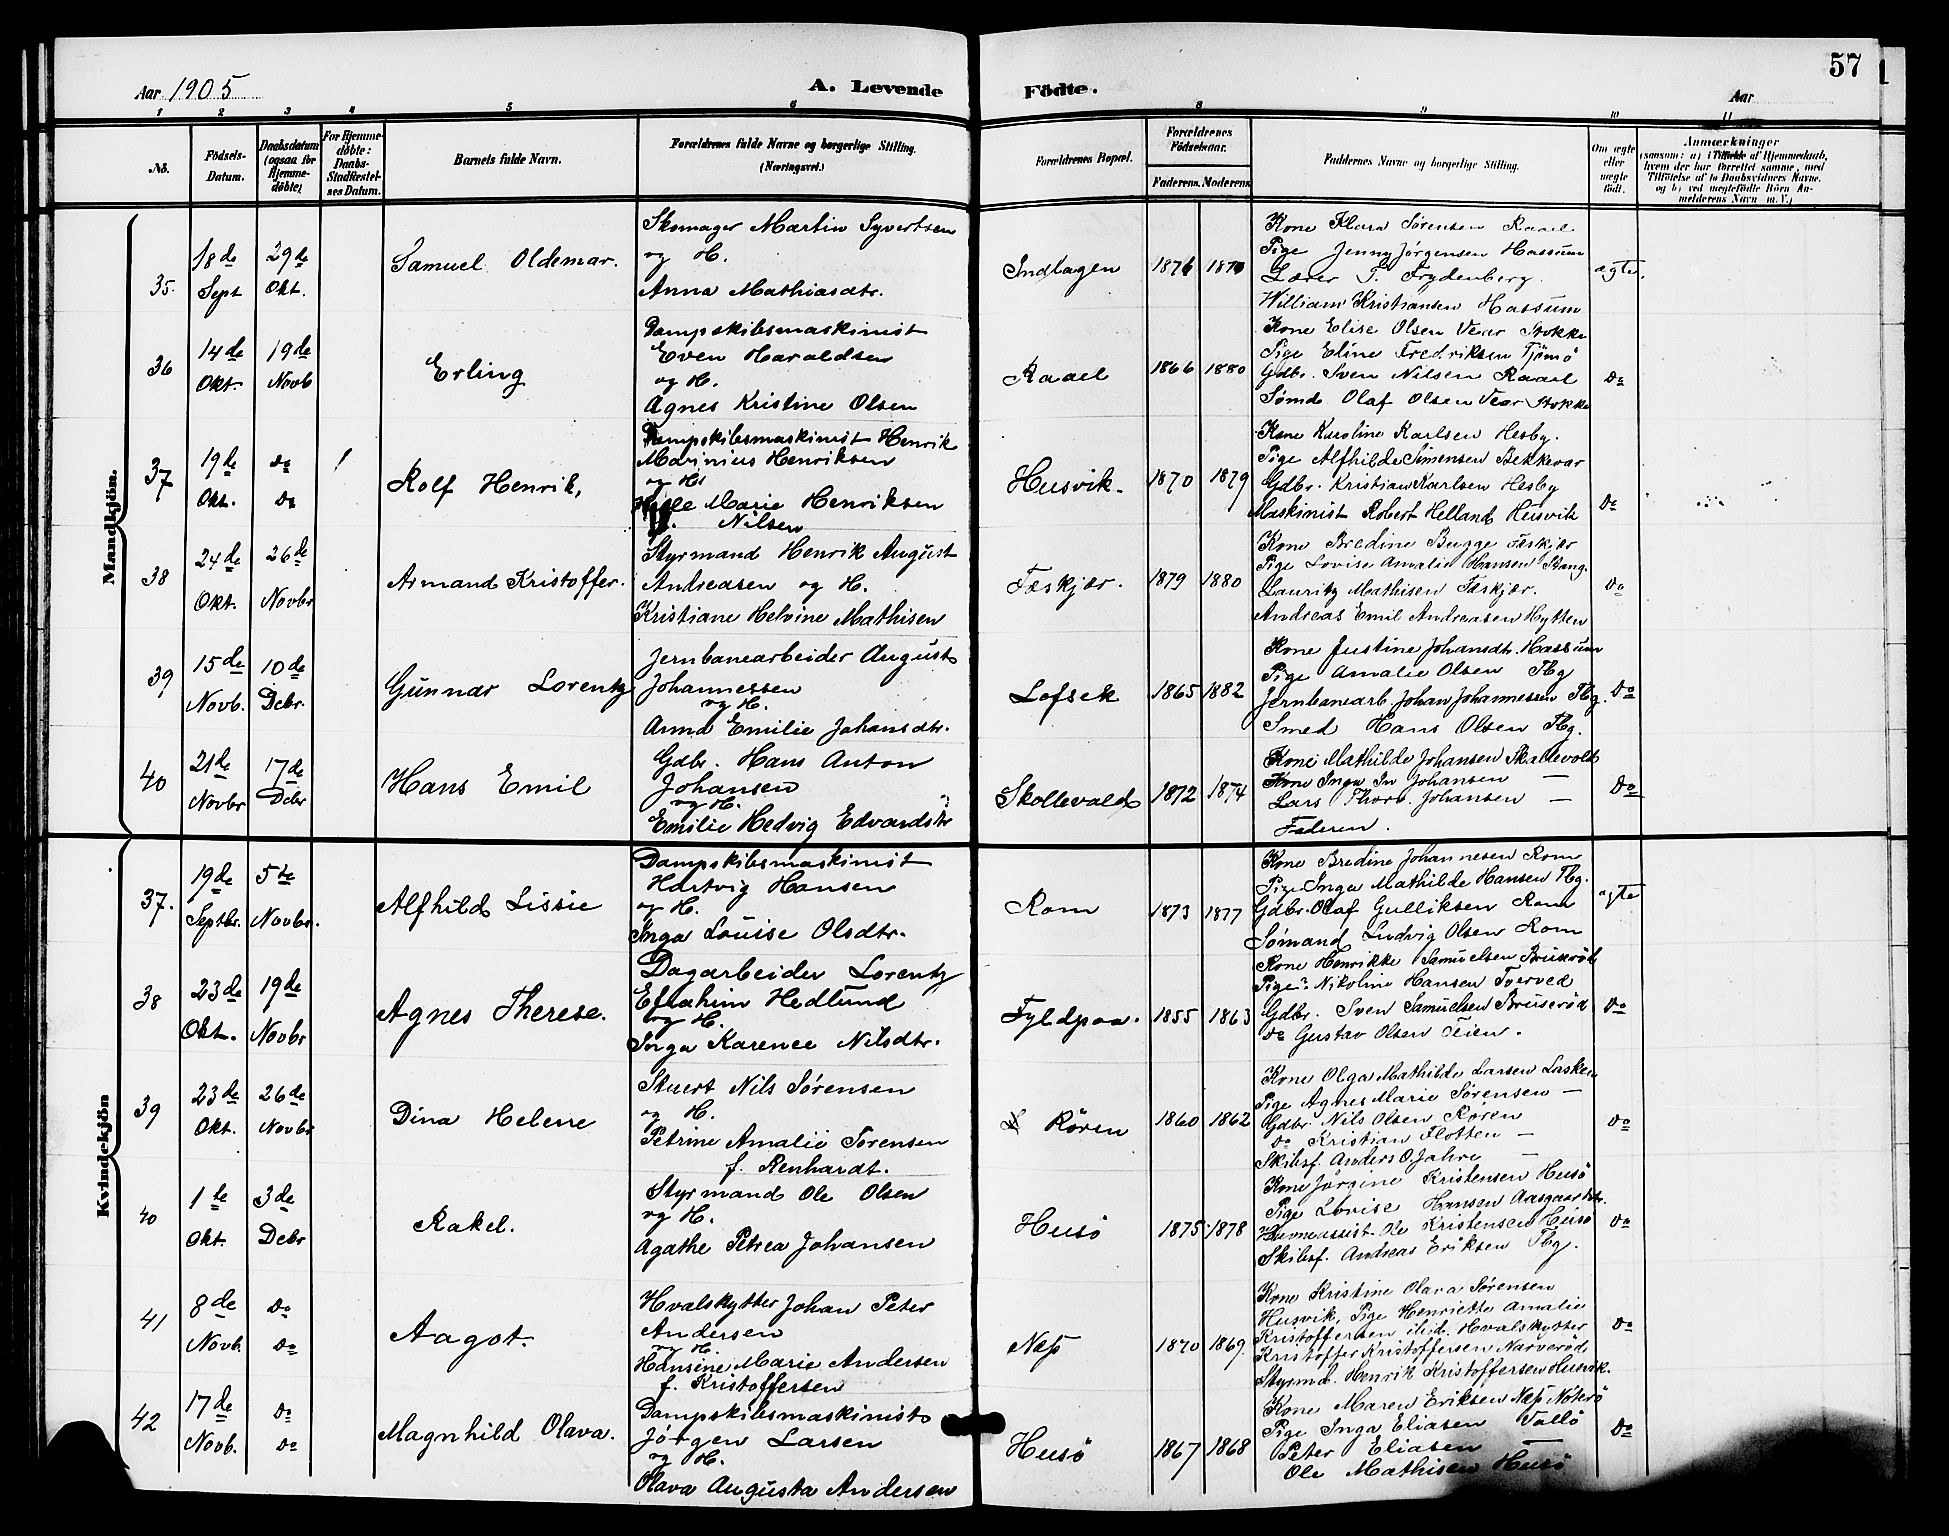 57
Aar 1905
A. Levende
Födte.
Aar
1 2 3 4 5 6 8 9 10 11
No.
Födsels-
Datum.
Daabsdatum
(ogsaa for
Hjemme-
döbte)
For Hjemme-
döbte:
Daabs-
Stadfæstel-
ses Datum.
Barnets fulde Navn.
Forældrenes fulde Navne og borgerlige Stilling.
(Næringsvei.)
Forældrenes Bopæl.
Forældrenes
Fødselsaar.
Faderens. Moderens
Faddernes Navne og borgerlige Stilling.
Om ægte
eller
uægte
födt.
Anmærkninger
(saasom: a) i Tilfælde af Hjemmedaab,
hvem der har forrettet samme, med
Tilföielse af to Daabsvidners Navne.
og b) ved uægtefödte Börn An-
melderens Navn m. V.)
Mandkjön.
35.
18de
Sept
29de
Okt.
Samuel Oldemar.
Skomager Martin Syvertsen
og H.
Anna Mathiasdtr.
Indlagen
1876
1870
Kone Flora Sørensen Raael
Pige Jenny Jørgensen Hassum
Lærer T. Frydenberg.
William Kristiansen Hassum
ægte.
36
14de
Okt.
19de
Novb
Erling
Dampskibsmaskinist
Even Haraldsen
og H.
Agnes Kristine Olsen
Raael
1866
1880
Kone Elise Olsen Vear Stokke
Pige Eline Fredriksen Tjömö
Gdbr. Sven Nilsen Raael
Sömd Olaf Olsen Vear Stokke
Do
37
19de
Okt.
Do
Do
Rolf Henrik,
Dampskibsmaskinist Henrik
Marinius Henriksen
og H
Marie Henriksen
Nilsen
Husvik.
1870
1879
Kone Karoline Karlsen Hesby.
Pige Alfhilde Simensen Bekkevar
Gdbr. Kristian Karlsen Hesby
Maskinist Robert Helland Husvik
Do
38
24de
Okt.
26de
Novbr
Armand Kristoffer.
Styrmand Henrik August
Andreasen og H.
Kristiane Helvine Mathisen
Fæskjær.
1879
1880
Kone Bredine Bugge Fæskjær
Pige Lovise Amalie Hansen Stang.
Lauritz Mathisen Fæskjær.
Andreas Emil Andreasen Hytten
Do
39
15de
Novb.
10de
Debr
Gunnar Lorentz
Jernbanearbeider August
Johannessen
og H.
Anna Emilie Johansdtr.
Lofsek
1865
1882
Kone Justine Johansdt. Hassum
Pige Amalie Olsen Tbg
Jernbanearb. Johan Johannessen Tbg.
Smed Hans Olsen Tbg.
Do
40
21de
Novbr
17de
Debr
Hans Emil
Gdbr. Hans Anton
Johansen
og H.
Emilie Hedvig Edvardsdtr
Skollevald
1872
1874
Kone Mathilde Johansen Skallevold
Kone Inga Johansen —
Lars Thorv. Johansen —
Faderen.
Do
Kvindekjön
37.
19de
Septbr.
5te
Novbr.
Alfhild Lissie
Dampskibsmaskinist
Hartvig Hansen
og H.
Inga Louise Olsdtr.
Rom
1873
1877
Kone Bredine Johannesen Rom
Pige Inga Mathilde Hansen Tbg.
Gdbr. Olaf Gulliksen Rom
Sømand Ludvig Olsen Rom
ægte
38
23de
Okt.
19de
Novbr
Agnes Therese.
Dagarbeider Lorentz
Efrahim Hedlund
og H.
Inga Karence Nilsdtr.
Fyldpaa.
1855
1863
Kone Henrikke Samuelsen Bruserød
Pige Nikoline Hansen Tverved
Gdbr. Sven Samuelsen Bruserød
Do Gustav Olsen Teien.
Do
39
23de
Okt.
26de
Novbr
Dina Helene
Stuert Nils Sørensen
og H.
Petrine Amalie Sørensen
f. Renhardt.
Røren
1860
1862
Kone Olga Mathilde Larsen Lasken
Pige Agnes Marie Sørensen —
Gdbr Nils Olsen Røren
Do Kristian Flotten —
Skibsf. Anders O. Jahre —
Do
40
1te
Okt.
3de
Debr
Rakel.
Styrmand Ole Olsen
og H.
Agathe Petrea Johansen
Husö
1875
1878
Kone Jørgine Kristensen Husö
Pige Lovise Hansen Aasgaardstr.
Ole Kristensen Husö
Skibsf. Andreas Eriksen Tbg.
Do
41
8de
Novb.
Do
Do
Aagot.
Hvalskytter Johan Peter
Andersen
og H.
Hansine Marie Andersen
f. Kristoffersen
Nes
1870
1869.
Kone Kristine Olava Sørensen
Husvik, Pige Henriette Amalie
Kristoffersen ibid. Hvalskytter
Kristoffer Kristoffersen Narverød
Styrmd. Henrik Kristoffersen Husvik.
Do
42
17de
Novb.
Do
Do
Magnhild Olava.
Dampskibsmaskinist
Jørgen Larsen
og H.
Olava Augusta Andersen
Husö
1867
1868
Kone Maren Eriksen Nes Nøterö
Pige Inga Eliasen Tallö
Peter Eliasen —
Ole Mathisen Husö
Do